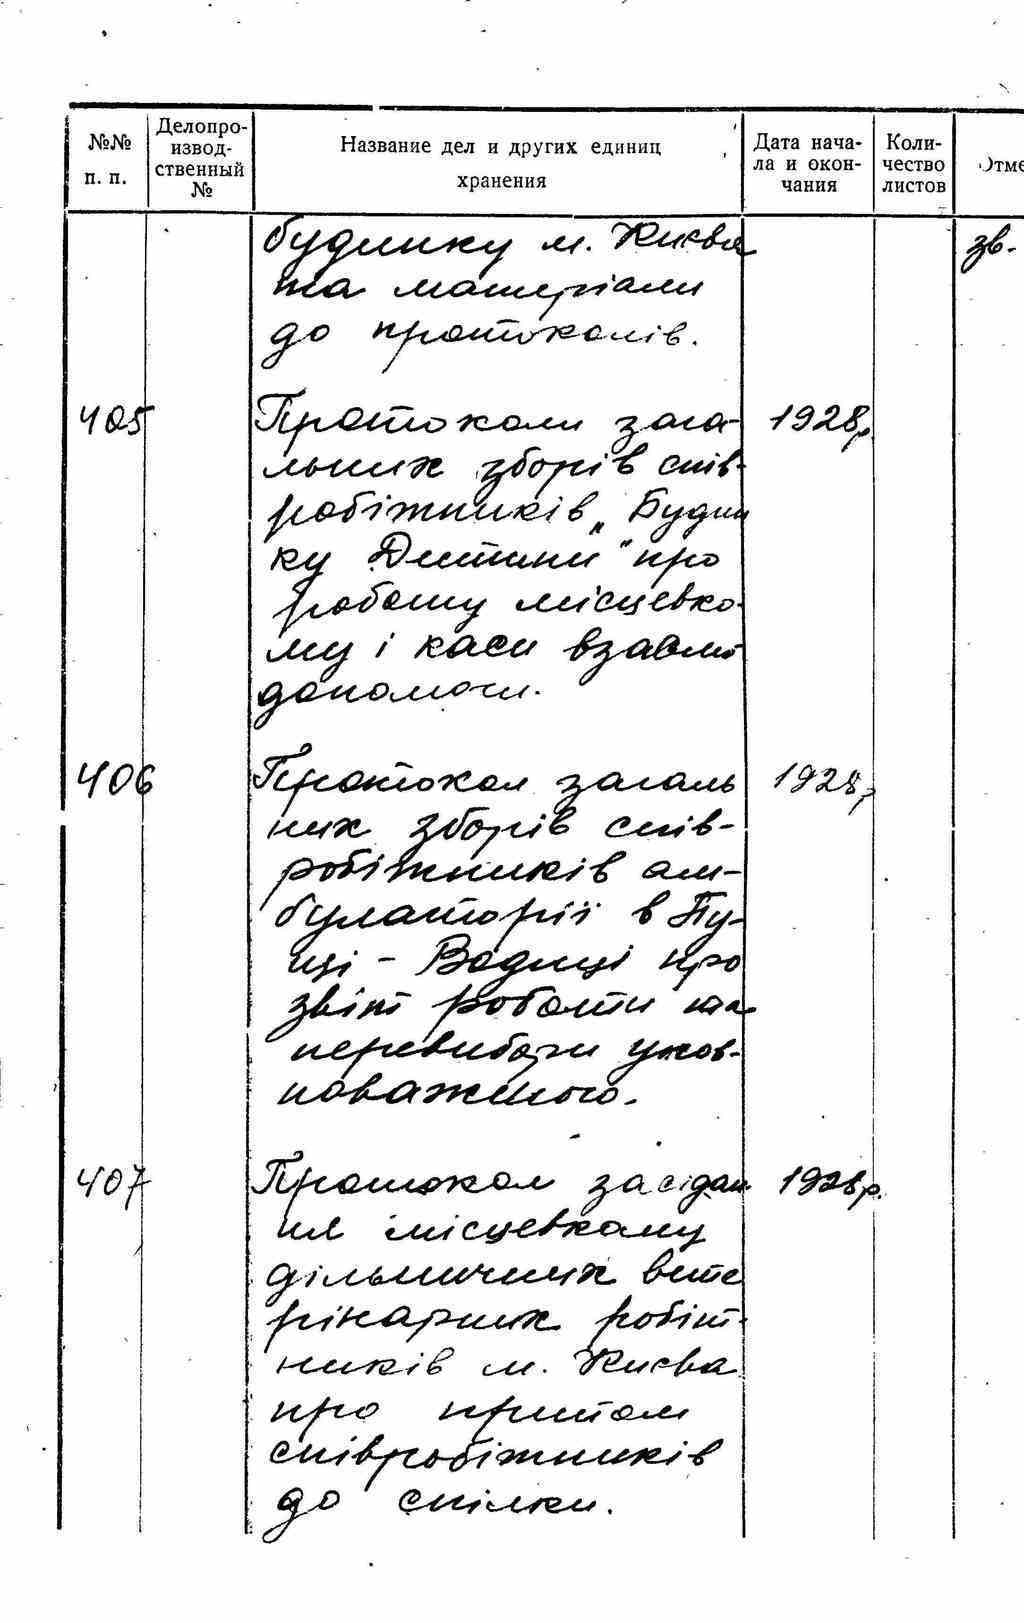 №№ п. п.
Делопроизводственный №
Название дел и других единиц хранения
Дата начала и окончания
Количество листов
Отме
будинку м. Києва
та матеріали
до протоколів.
зв.
405
Протоколи зага-
льних зборів спів-
робіжників „Будин
ку Дитини" про
роботу місцевко-
му і каси взаємо
допомоги.
1928р.
406
Протокол загаль
них зборів спів-
робіжників ам-
булаторії в Пу-
щі - Водиці про
звіт роботи та
перевибори упов-
новаженого.
1928р
407
Протокол засідан
ня місцевкому
дільничних вете
рінарних робіт-
ників м. Києва
про прийом
співробіжників
до спілки.
1928р.